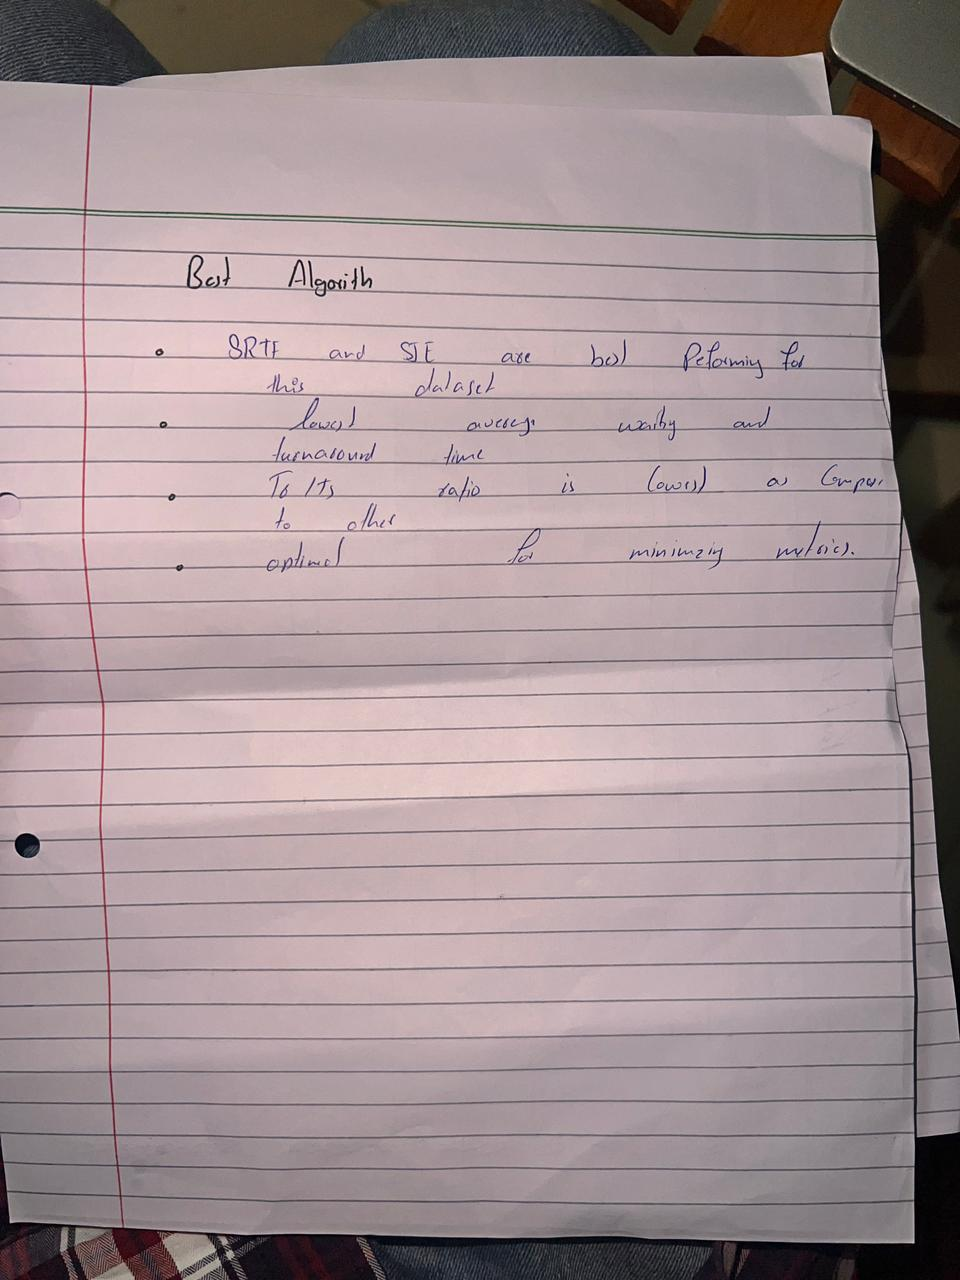 Best Algorith
SRTF and SJF are best Peforming for
this dataset
lowest average waiting and
turnaround time
Ta/Ts ratio is lowest as Compar
to other
optimal for minimzing metrics.